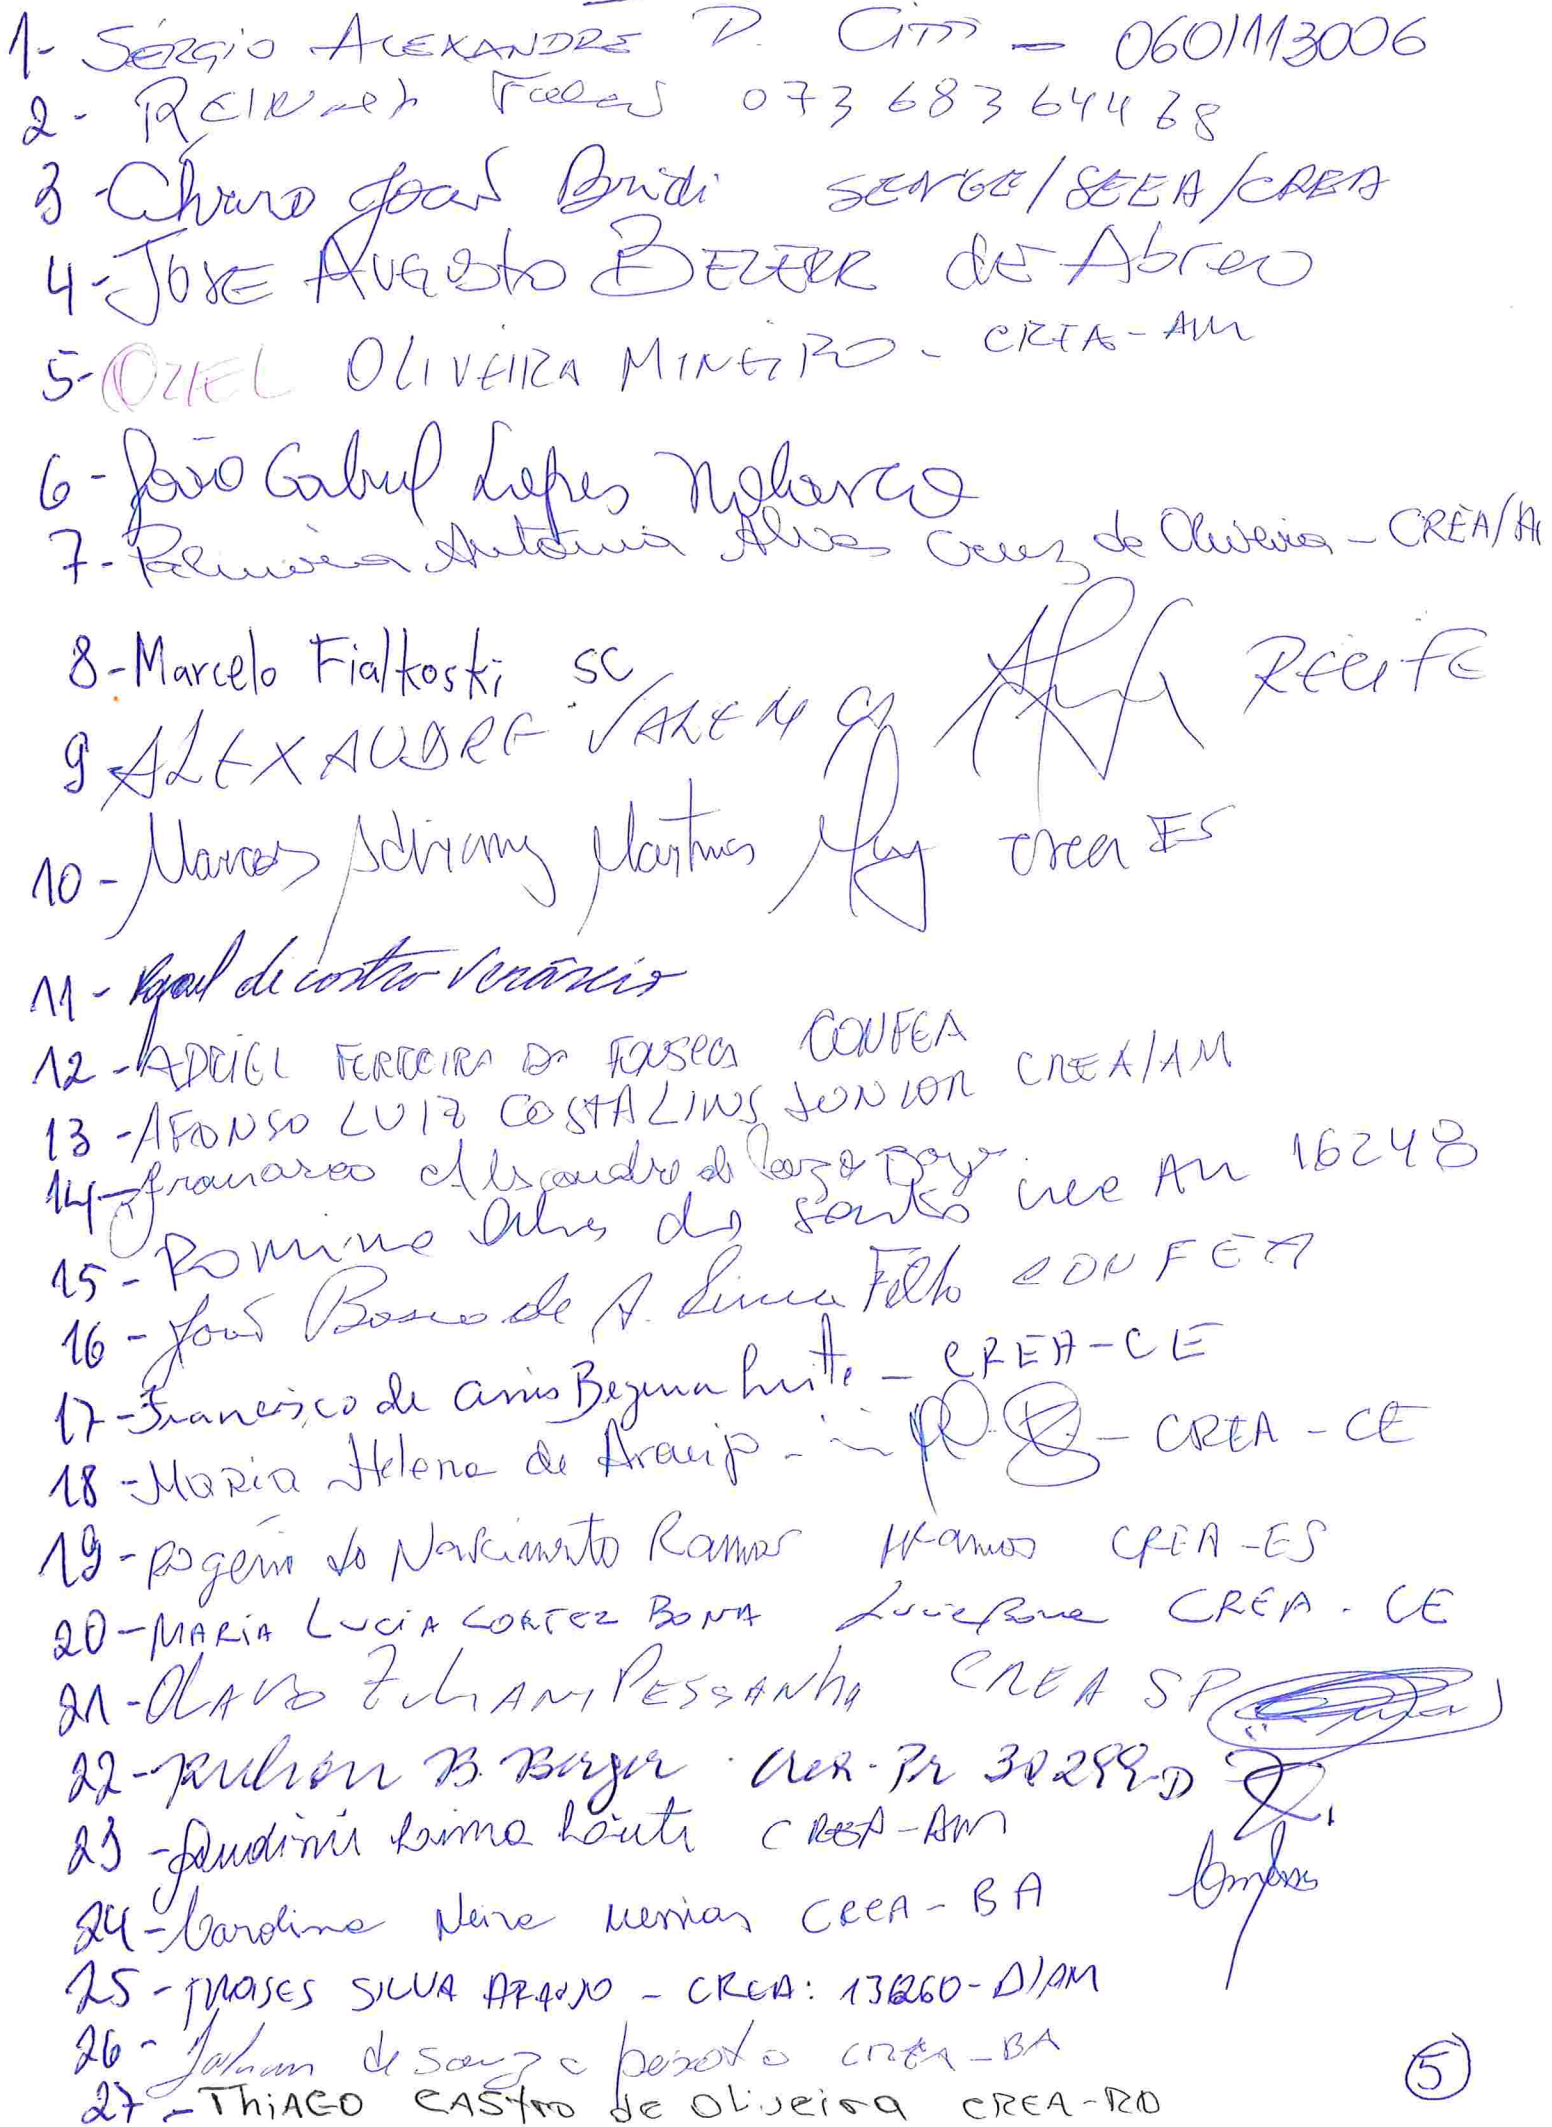 1- SÉRGIO ALEXANDRE P. - 0601113006
2- 07368364468
3- João Bridi SENGE/SEEA/CREA
4- JOSE AUGUSTO BEZERR de Abreo
5- OZIEL OLIVEIRA MINEIRO - CREA-AM
6- João Gabriel Lopes
7- Palmira Antônia Alves Cruz de Oliveira - CREA/
8- Marcelo Fialkoski SC
9 ALEXANDRE VALENÇA RECIFE
10- Marcos Adriany Martins Crea ES
11- de castro Venâncio
12- ADRIEL FERREIRA DA FONSECA CONFEA
13- AFONSO LUIZ COSTA LINS JUNIOR CREA/AM
14- Francisco Alexandre de
15- Alves dos Santos Crea AM 16248
16- João Bosco de A. Lima Filho CONFEA
17- Francisco de Assis Bezerra Leite - CREA-CE
18- MARIA Helena de Araujo - CREA-CE
19- Rogério do Nascimento Ramos CREA-ES
20- MARIA LUCIA CORTEZ BONA CREA.CE
21- OLAVO ZULIANI PESSANHA CREA SP
22- B. Berger. Crea-Pr
23 - Lima CREA-AM
24- Carolina Neiva Messias CREA-BA
25- MOISES SILVA ARAUJO - CREA: 13260-D/AM
26- de Souza peixoto CREA-BA
27- THIAGO CASTRO de Oliveira CREA-RO
5